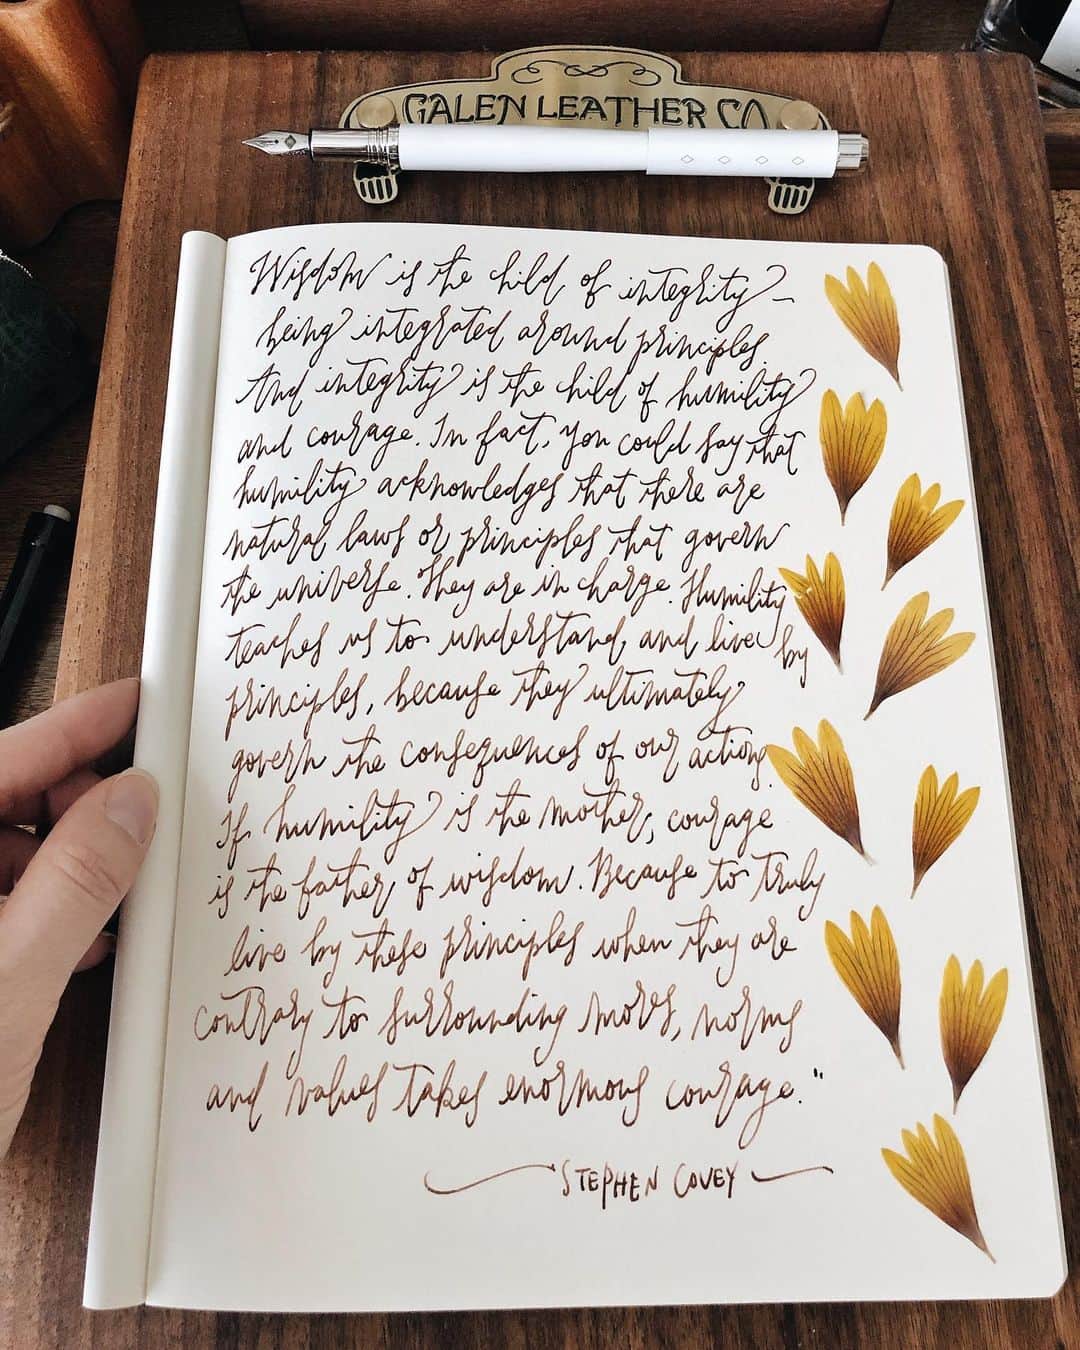 GALEN LEATHER CO.
Wisdom is the child of integrity –
being integrated around principles.
And integrity is the child of humility
and courage. In fact, you could say that
humility acknowledges that there are
natural laws or principles that govern
the universe. They are in charge. Humility
teaches us to understand and live by
principles, because they ultimately
govern the consequences of our actions.
If humility is the mother, courage
is the father of wisdom. Because to truly
live by these principles when they are
contrary to surrounding mores, norms
and values takes enormous courage."
STEPHEN COVEY